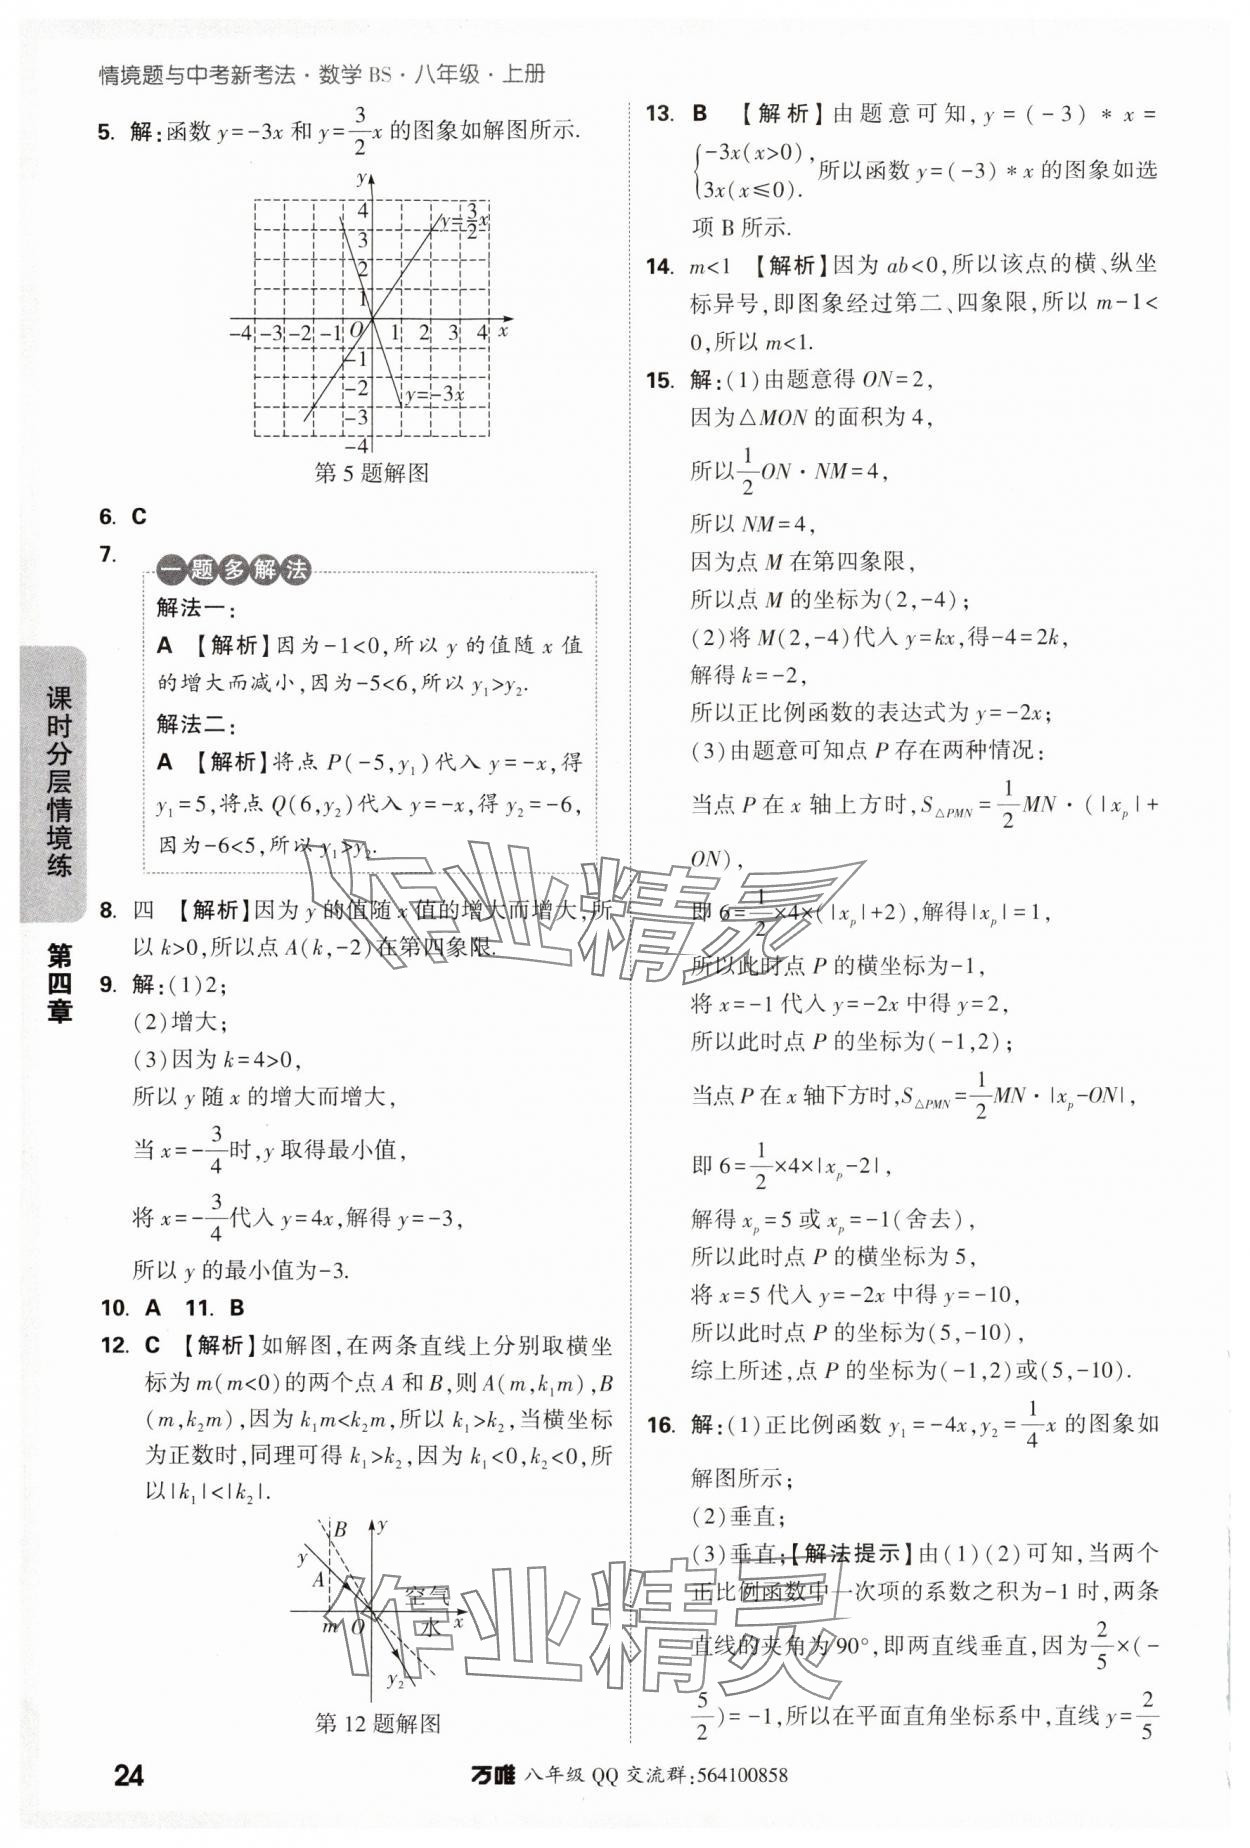 情境题与中考新考法·数学 BS·八年级·上册
5. 解:函数 y=-3x 和 y=3/2x 的图象如解图所示.
y
4
3
2
1
y=3/2x
-4 -3 -2 -1 O 1 2 3 4 x
-1
-2
-3
-4
y=-3x
第 5 题解图
6. C
7.
一题多解法
解法一:
A 【解析】因为-1<0,所以 y 的值随 x 值
的增大而减小,因为-5<6,所以 y₁>y₂.
解法二:
A 【解析】将点 P(-5,y₁)代入 y=-x,得
y₁=5,将点 Q(6,y₂)代入 y=-x,得 y₂=-6,
因为-6<5,所以 y₁>y₂.
8. 四 【解析】因为 y 的值随 x 值的增大而增大,所
以 k>0,所以点 A(k,-2)在第四象限.
9. 解:(1)2;
(2)增大;
(3)因为 k=4>0,
所以 y 随 x 的增大而增大,
当 x=-3/4时,y 取得最小值,
将 x=-3/4代入 y=4x,解得 y=-3,
所以 y 的最小值为-3.
10. A 11. B
12. C 【解析】如解图,在两条直线上分别取横坐
标为 m(m<0)的两个点 A 和 B,则 A(m,k₁m),B
(m,k₂m),因为 k₁m<k₂m,所以 k₁>k₂,当横坐标
为正数时,同理可得 k₁>k₂,因为 k₁<0,k₂<0,所
以|k₁|<|k₂|.
B y
y
A
空气
m O 水 x
y₂
第 12 题解图
13. B 【解析】由题意可知,y=(-3)*x=
{-3x(x>0),
3x(x≤0).
所以函数 y=(-3)*x 的图象如选
项 B 所示.
14. m<1 【解析】因为 ab<0,所以该点的横、纵坐
标异号,即图象经过第二、四象限,所以 m-1<
0,所以 m<1.
15. 解:(1)由题意得 ON=2,
因为△MON 的面积为 4,
所以1/2ON·NM=4,
所以 NM=4,
因为点 M 在第四象限,
所以点 M 的坐标为(2,-4);
(2)将 M(2,-4)代入 y=kx,得-4=2k,
解得 k=-2,
所以正比例函数的表达式为 y=-2x;
(3)由题意可知点 P 存在两种情况:
当点 P 在 x 轴上方时,S△PMN=1/2MN·(|xₚ|+
ON),
即 6=1/2×4×(|xₚ|+2),解得|xₚ|=1,
所以此时点 P 的横坐标为-1,
将 x=-1 代入 y=-2x 中得 y=2,
所以此时点 P 的坐标为(-1,2);
当点 P 在 x 轴下方时,S△PMN=1/2MN·|xₚ-ON|,
即 6=1/2×4×|xₚ-2|,
解得 xₚ=5 或 xₚ=-1(舍去),
所以此时点 P 的横坐标为 5,
将 x=5 代入 y=-2x 中得 y=-10,
所以此时点 P 的坐标为(5,-10),
综上所述,点 P 的坐标为(-1,2)或(5,-10).
16. 解:(1)正比例函数 y₁=-4x,y₂=1/4x 的图象如
解图所示;
(2)垂直;
(3)垂直;【解法提示】由(1)(2)可知,当两个
正比例函数中一次项的系数之积为-1 时,两条
直线的夹角为 90°,即两直线垂直,因为2/5×(-
5/2)=-1,所以在平面直角坐标系中,直线 y=2/5
课时分层情境练
第四章
作业精灵
作业精灵
24
万唯 八年级 QQ 交流群:564100858